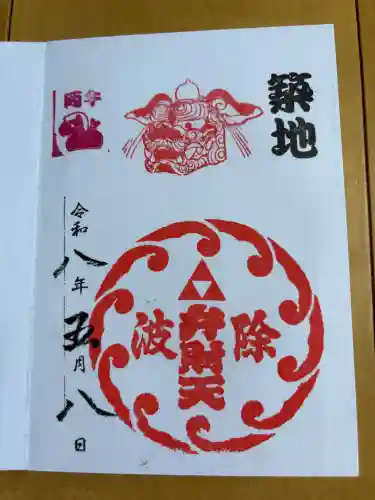 築地
除
弁財天
波
令和八年五月八日